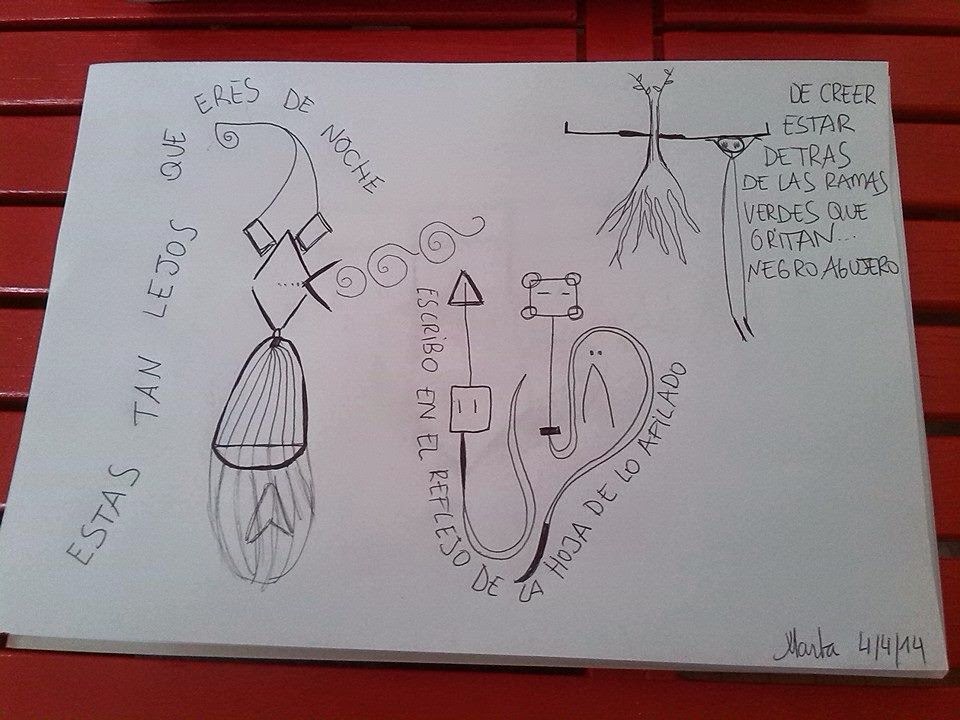 ESTAS TAN LEJOS QUE ERES DE NOCHE
ESCRIBO EN EL REFLEJO DE LA HOJA DE LO AFILADO
DE CREER
ESTAR
DETRAS
DE LAS RAMAS
VERDES QUE
GRITAN...
NEGRO AGUJERO
Marta 4/4/14